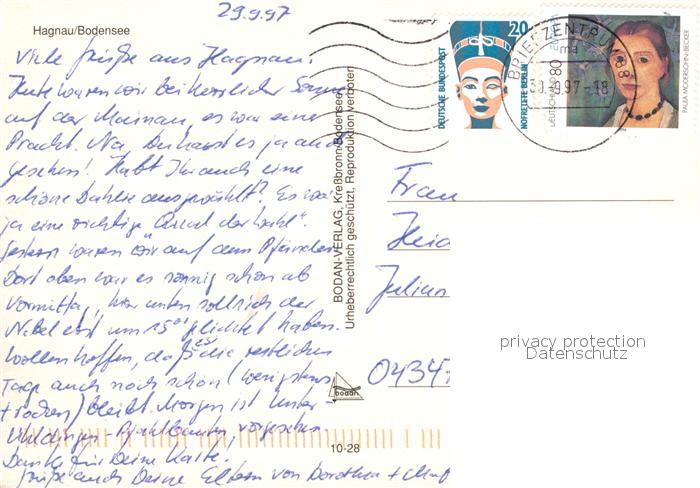 29.9.97
Hagnau/Bodensee
Viele Grüße aus Hagnau.
Heute waren wir bei herrlicher Sonne
auf der Mainau, es war eine
Pracht. Na, Du hast es ja auch
gesehen! Habt Ihr auch eine
schöne Dahlie ausgewählt? Es war
ja eine richtige "Qual der Wahl".
Gestern waren wir auf dem Pfänder.
Dort oben war es sonnig schon ab
Vormittag, hier unten soll sich der
Nebel erst um 15 gelichtet haben.
Wollen hoffen, daß es die restlichen
Tage auch noch schön (wenigstens
trocken) bleibt. Morgen ist Unter-
Uhldingen - Pfahlbauten, vorgesehen.
Danke für Deine Karte.
Grüße auch Deine Eltern von Dorothea +
BODAN-VERLAG, Kreßbronn/Bodensee
Urheberrechtlich geschützt, Reproduktion verboten
bodan
10-28
DEUTSCHE BUNDESPOST
20
NOFRETETE BERLIN
BRIEFZENTRUM
-9.97-18
DEUTSCHLAND
80
PAULA MODERSOHN-BECKER
Frau
Heid
Julian
04347
privacy protection
Datenschutz